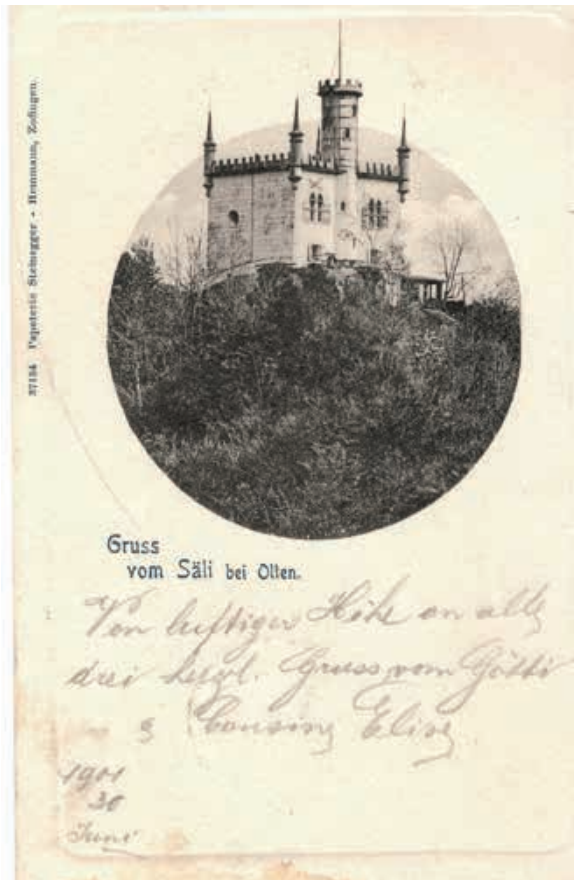 37154 Papeterie Steinegger - Hemmann, Zofingen.
Gruss
vom Säli bei Olten.
Von luftiger Höhe an alle
drei herzl. Gruss vom Götti
& Cousine Elise
1901
30
Juni